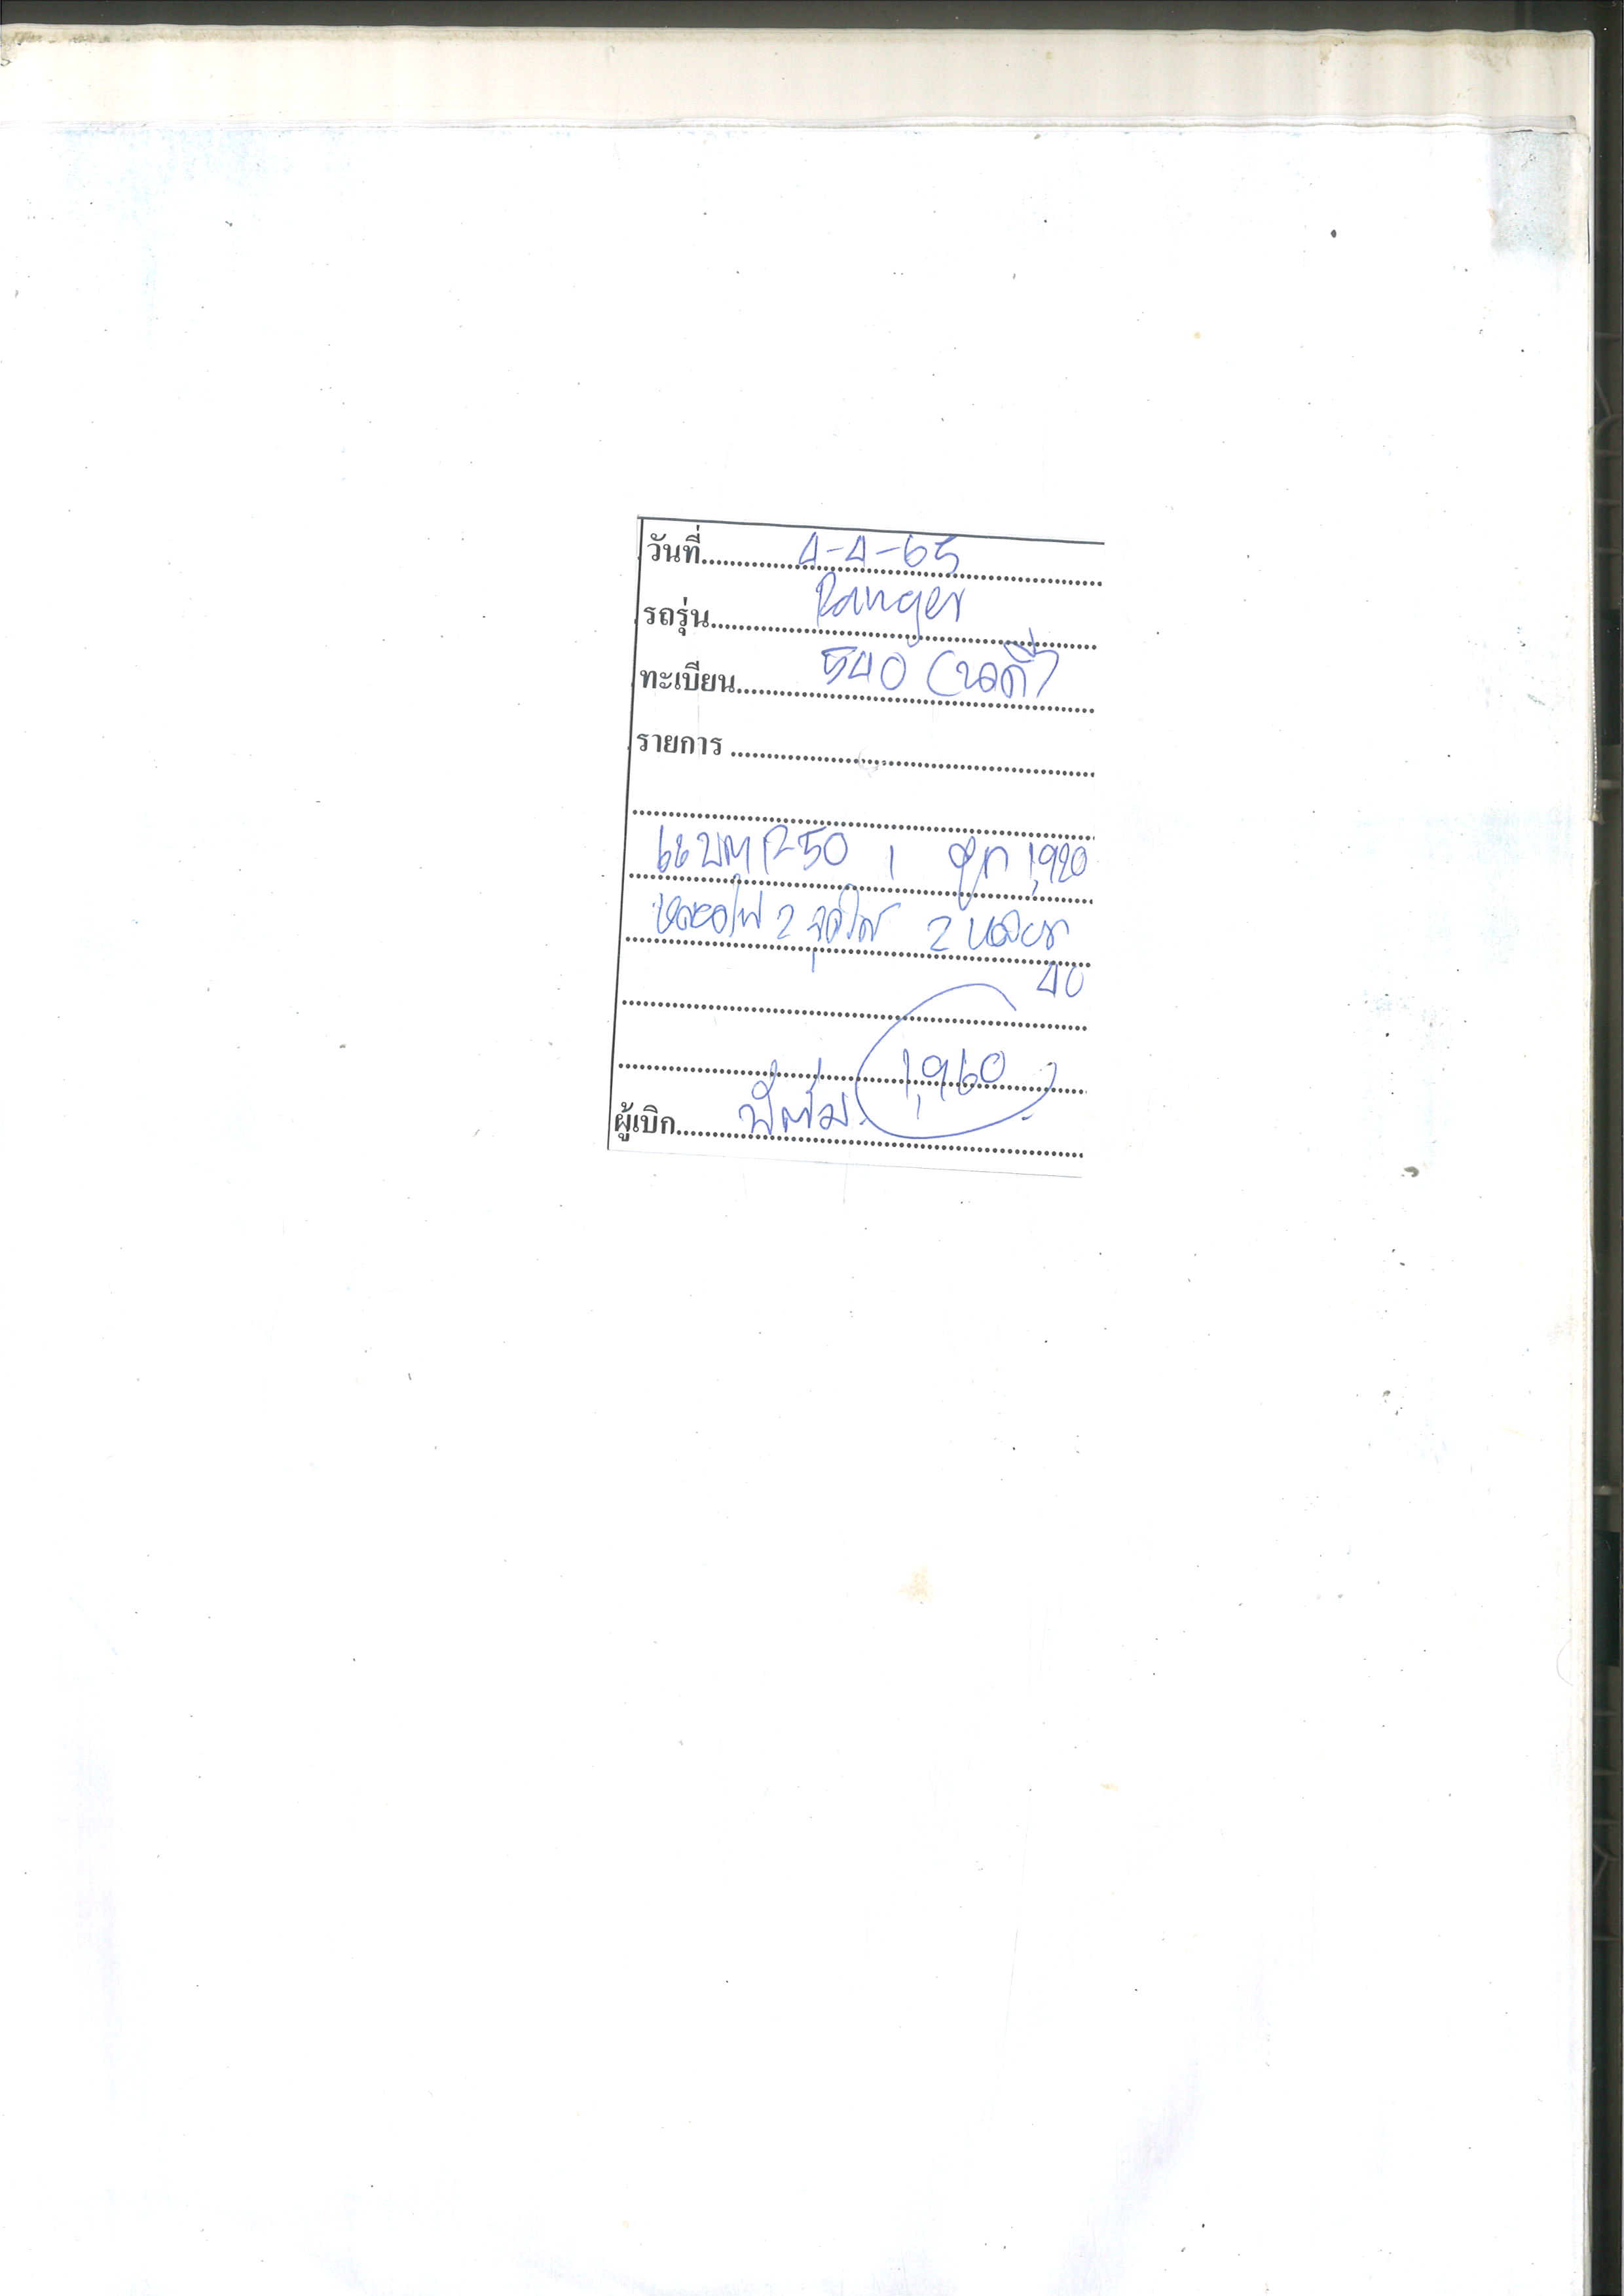 วันที่ 4-4-65
รถรุ่น Ranger
ทะเบียน 540 (นดี)
รายการ
แบต 250 1 ลูก 1,920
หลอดไฟ 2 จุดใส 2 หลอด
40
1,960
ผู้เบิก